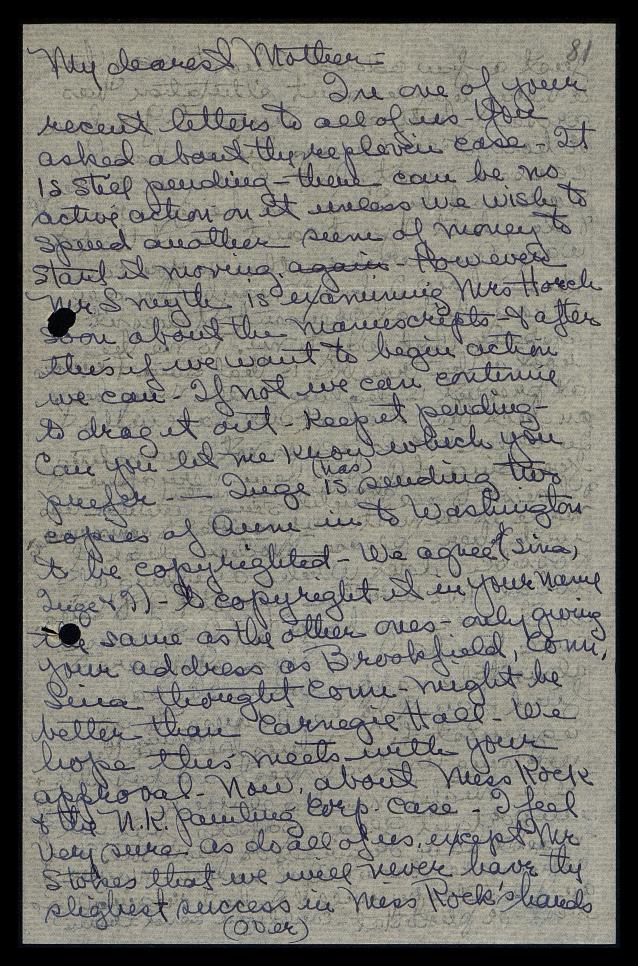 81
My dearest Mother -
In one of your
recent letters to all of us - You
asked about the replevin case - It
is still pending - there can be no
active action on it unless we wish to
spend another sum of money to
start it moving again - However
Mr. Smyth is examining Mrs Horch
soon about the Manuscripts & after
this if we want to begin action
we can - If not we can continue
to drag it out - Keep it pending -
Can you let me know which you
prefer. — Inge is (has) sending two
copies of Aum in to Washington
to be copyrighted - We agree (Sina,
Inge & I) - to copyright it in your name
the same as the other ones - only giving
your address as Brookfield, Conn,
Sina thought Conn - might be
better than Carnegie Hall - We
hope this meets with your
approval - Now, about Miss Rock
& the N.R. Painting Corp. case - I feel
very sure as do all of us, except Mr
Stokes that we will never have the
slighest success in Miss Rock's hands
(over)